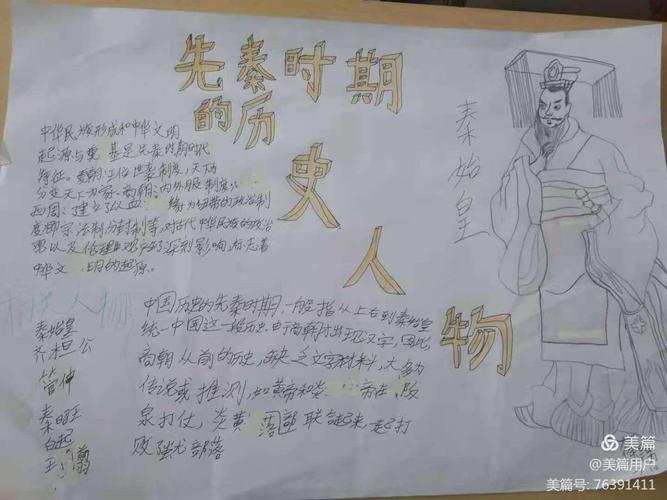 先秦时期
的历
史
人
物
秦始皇
中华民族形成和中华文明
起源与奠 基是先秦时期时代
特征。夏朝:王位世袭制度,天下
为家。商朝:内外服制度。
西周:建立了以血 缘为纽带的政治制
度即宗法制,分封制等,对古代中华民族的政治
以及伦理 深刻影响,标志着
中华文 明的起源。
人物
秦始皇
齐桓公
管仲
白起
王翦
中国历史的先秦时期,一般指从上古到秦始皇
统一中国这一段历史,由商朝才出现汉字,因此
商朝以前的历史,缺乏文字材料,大多为
传说或推测,如黄帝和炎 帝在 阪
泉打仗,炎黄 落 联合起来,一起打
败蚩尤部落
美篇
@美篇用户
美篇号: 76391411